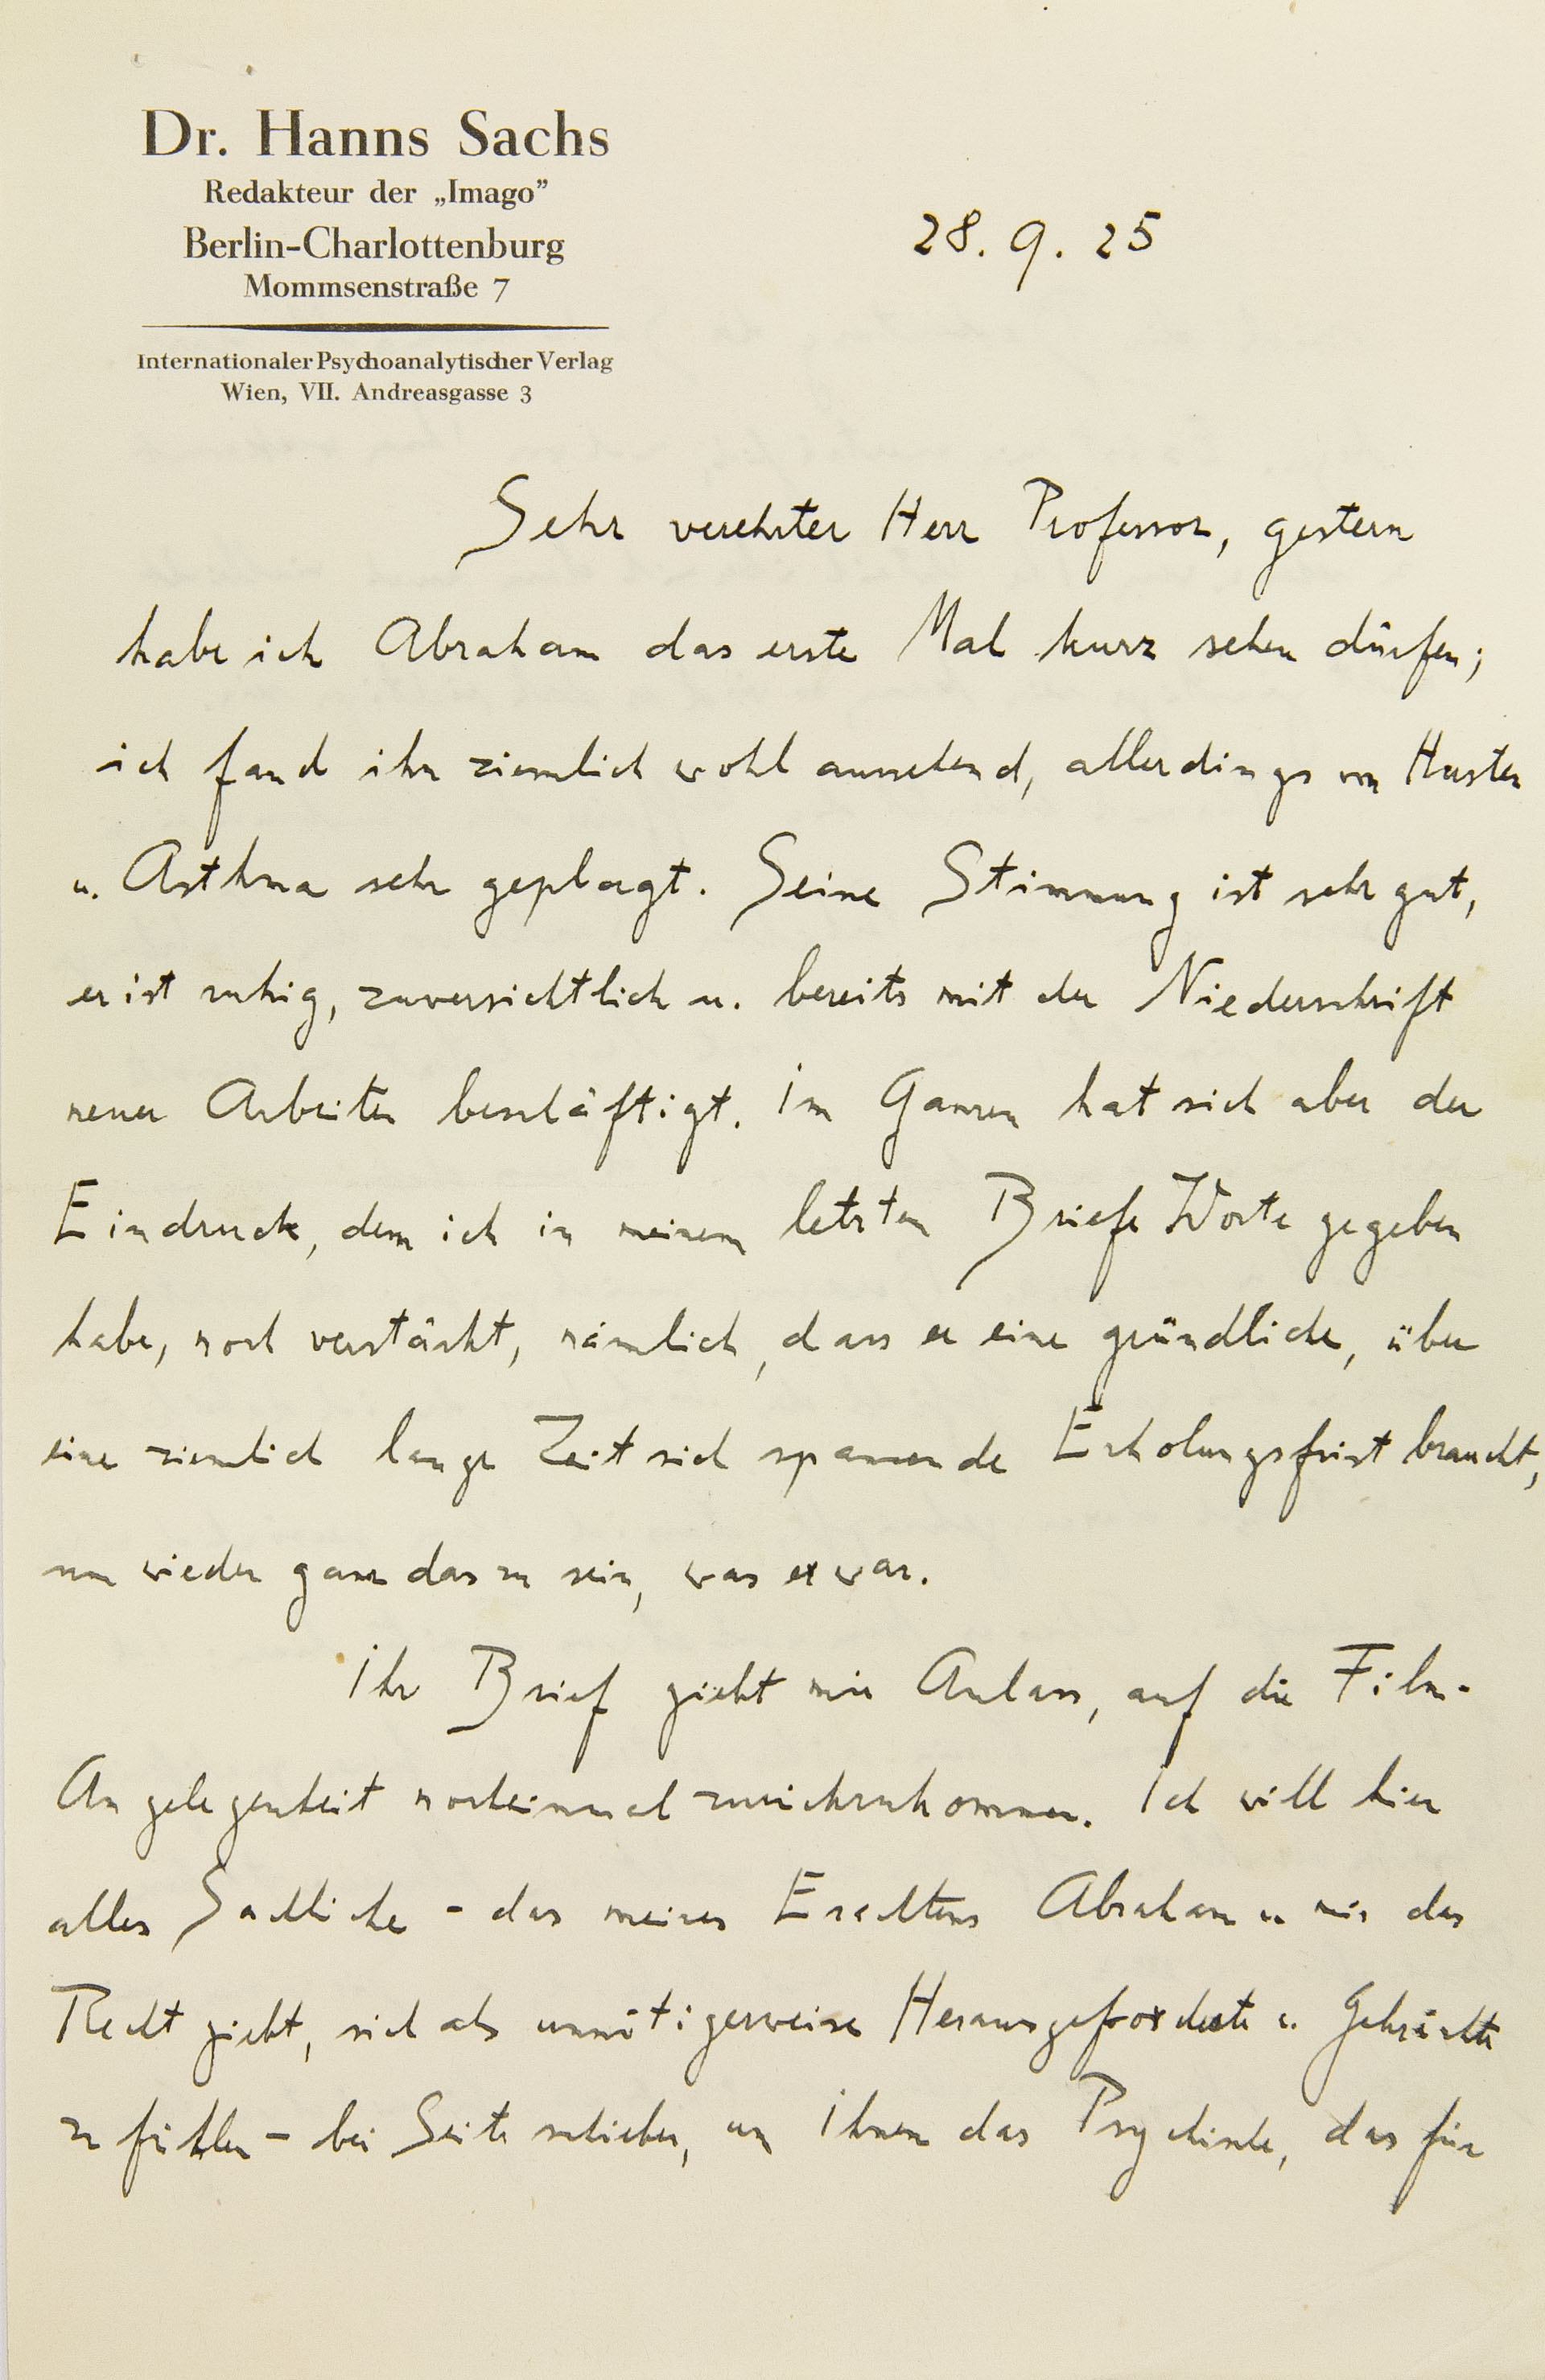 Dr. Hanns Sachs
Redakteur der „Imago”
Berlin-Charlottenburg
Mommsenstraße 7
Internationaler Psychoanalytischer Verlag
Wien, VII. Andreasgasse 3
28. 9. 25
Sehr verehrter Herr Professor, gestern
habe ich Abraham das erste Mal kurz sehen dürfen;
ich fand ihn ziemlich wohl aussehend, allerdings von Husten
u. Asthma sehr geplagt. Seine Stimmung ist sehr gut,
er ist ruhig, zuversichtlich u. bereits mit der Niederschrift
neuer Arbeiten beschäftigt. Im Ganzen hat sich aber der
Eindruck, dem ich in meinem letzten Briefe Worte gegeben
habe, noch verstärkt, nämlich, dass er eine gründliche, über
eine ziemlich lange Zeit sich spannende Erholungsfrist braucht,
um wieder ganz das zu sein, was er war.
Ihr Brief giebt mir Anlass, auf die Film-
Angelegenheit nocheinmal zurückzukommen. Ich will hier
alles Sachliche - das meines Erachtens Abraham u. mir das
Recht giebt, sich als unnötigerweise Herausgeforderte u. Gekränkte
zu fühlen - bei Seite schieben, um Ihnen das Psychische, das für